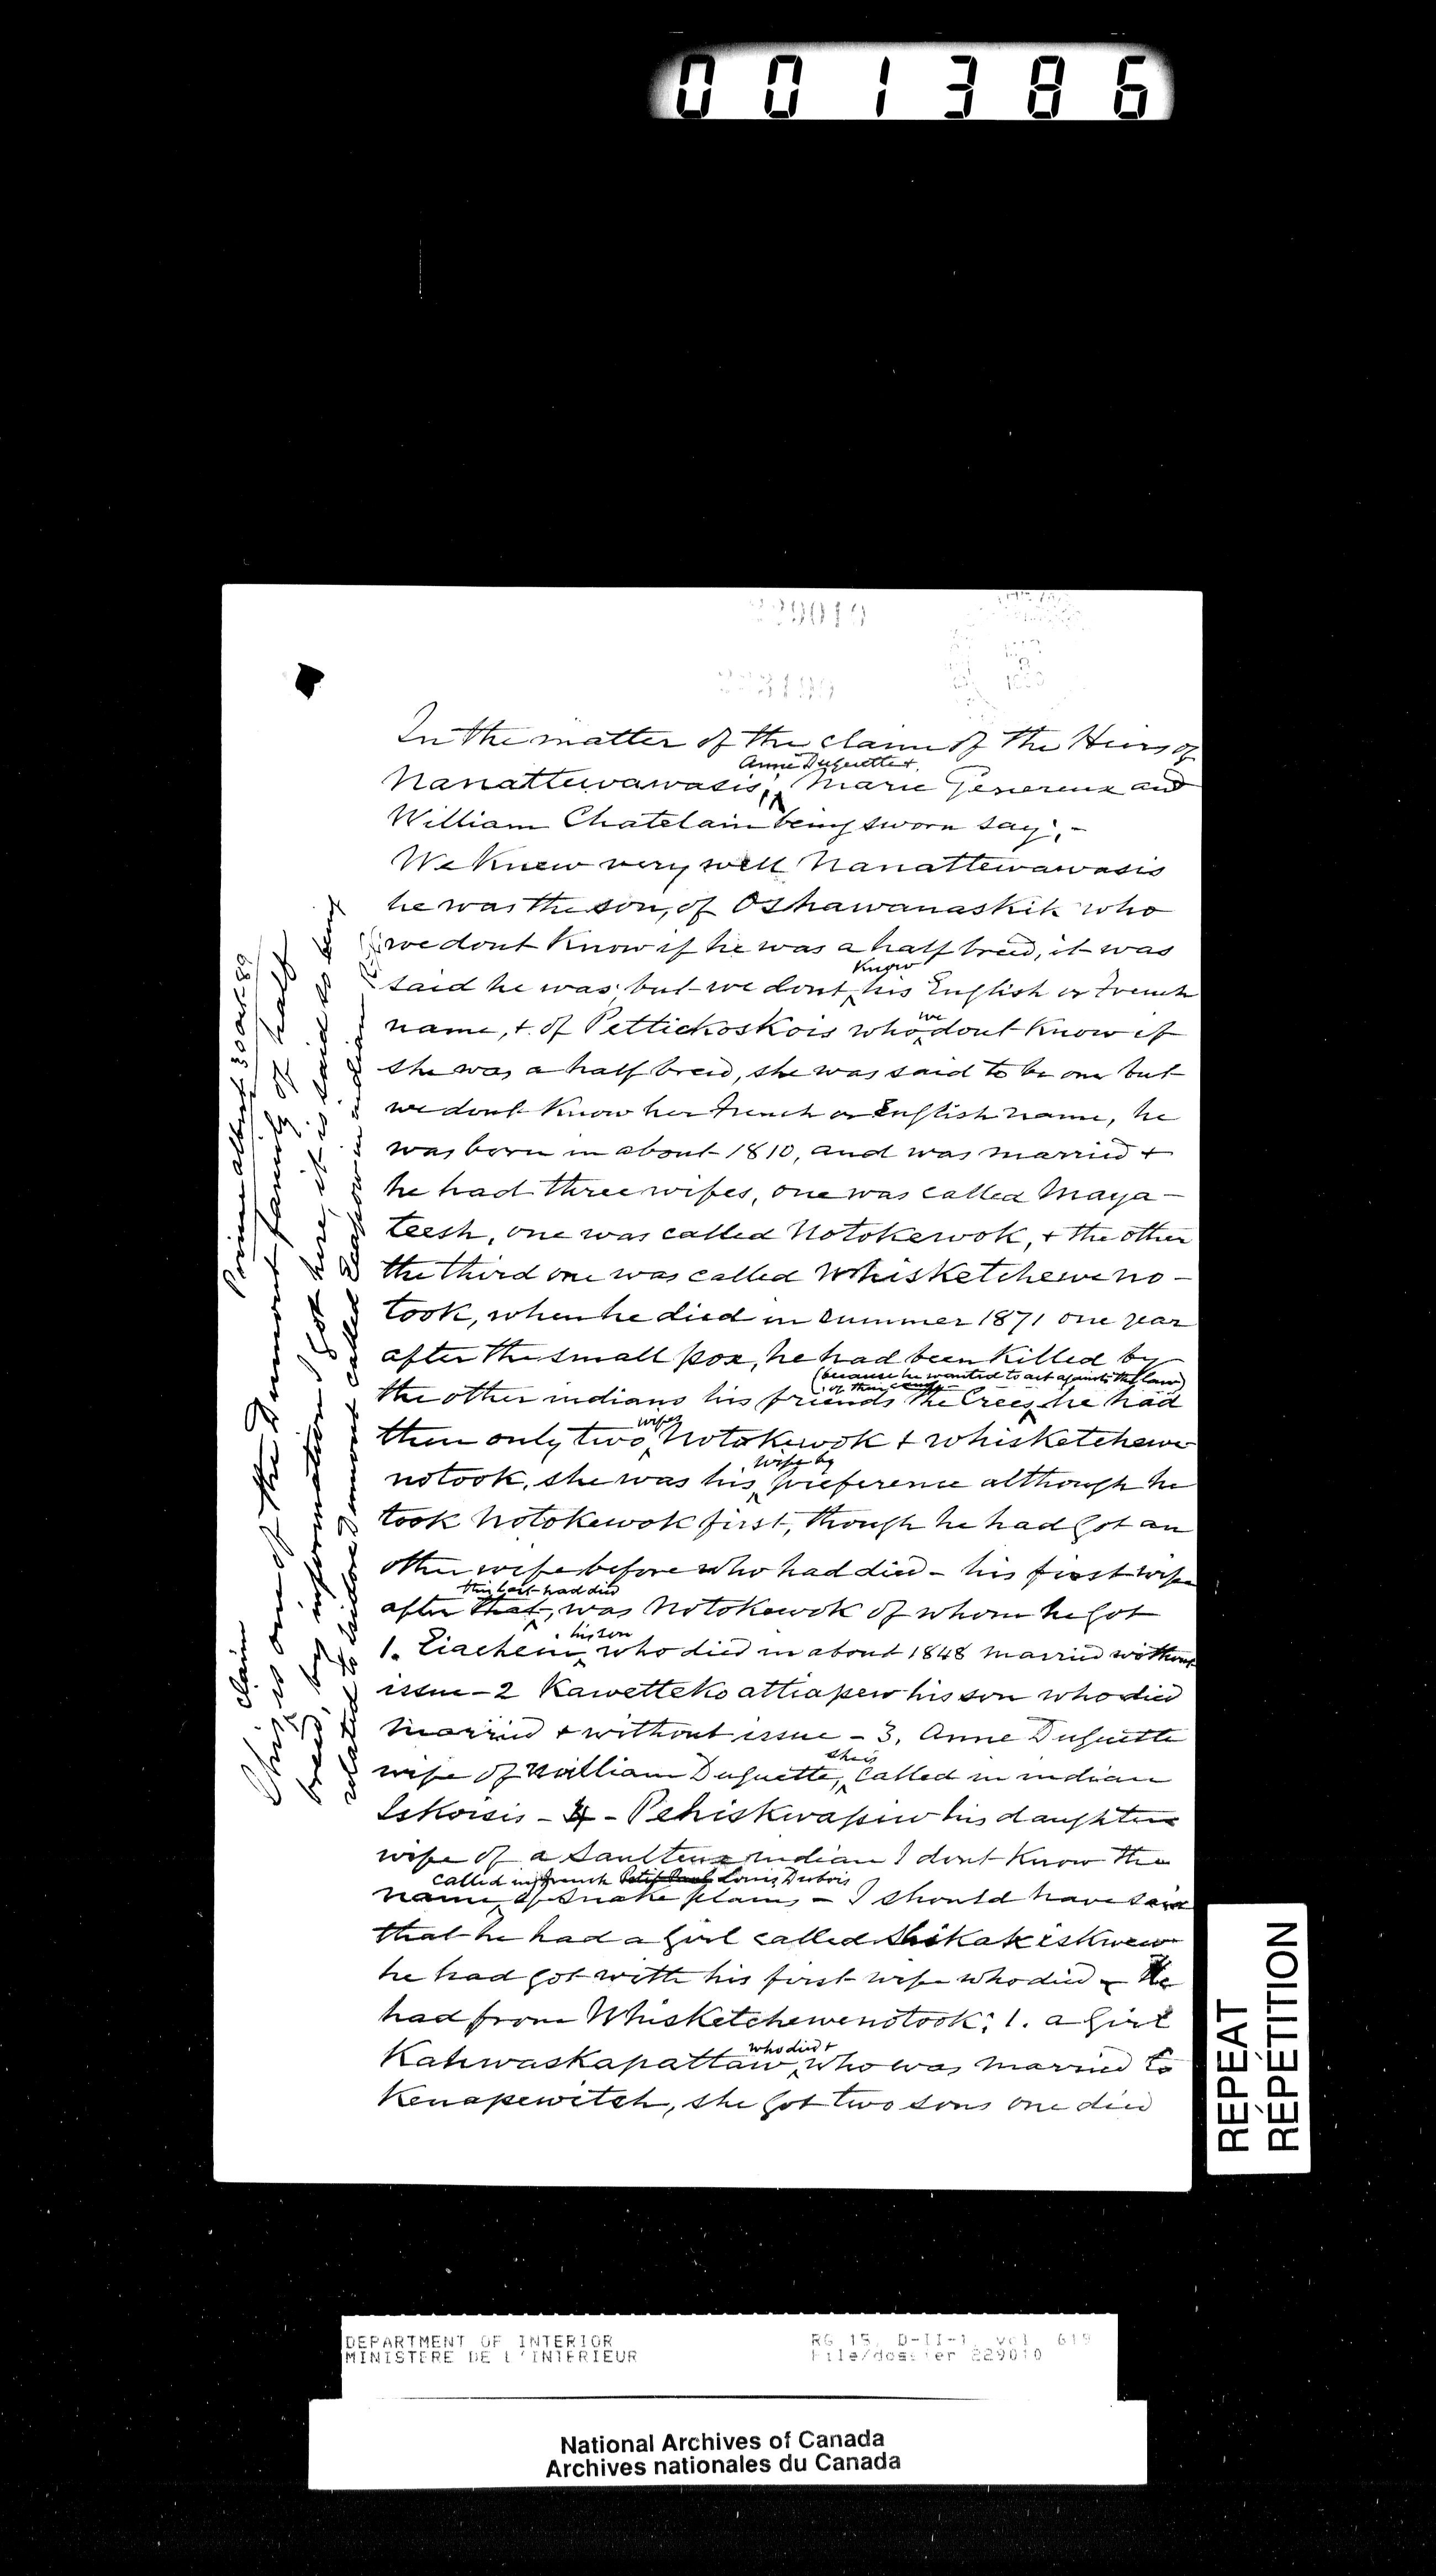 001386
229010
In the matter of the claim of the Heirs of
Anne Duquette +
Nanattewawasis, Marie Genereux and
William Chatelain being sworn say, -
We knew very well Nanattewawasis
he was the son, of Oshawanaskik who
we dont know if he was a half breed, it was
know
said he was, but we dont his English or French
we
name, + of Pettickoskois who dont know if
she was a half breed, she was said to be one but
we dont know her French or English name, he
was born in about 1810, and was married +
he had three wifes, one was called Maya-
teesh, one was called Notokewok, + the other
the third one was called Whisketcheweno-
took, when he died in summer 1871 one year
after the small pox, he had been killed by
(because he wanted to act against the law)
of their
the other indians his friends the Crees he had
wifes
then only two Notokewok + Whisketchewe
wife by
notook, she was his preference although he
took Notokewok first, though he had got an
other wife before who had died - his first wife
this last had died
after that, was Notokewok of whom he got
his son
1. Eiachem who died in about 1848 married without
issue - 2 Kawettekoattiapew his son who died
married + without issue - 3, Anne Duquette
she is
wife of William Duquette, called in indian
Iskoisis - 4 - Pehiskwapew his daughter
wife of a Saulteux indian I dont know the
called in French Petit Paul Louis Dubois
name, of Snake plain, - I should have said
that he had a girl called Shikakiskwew
he had got with his first wife who died - He
had from Whisketchewenotook; 1. a girl
who died +
Kahwaskapattaw who was married to
Kenapewitch, she got two sons one died
Prince Albert 30 Oct 89
This claim is one of the Dumont family of half
breed, by information I got here, it is said as being
related to Isidore Dumont called in indian
REPEAT
RÉPÉTITION
DEPARTMENT OF INTERIOR
MINISTERE DE L'INTERIEUR
RG 15, D-II-1, vol. 619
File/dossier 229010
National Archives of Canada
Archives nationales du Canada